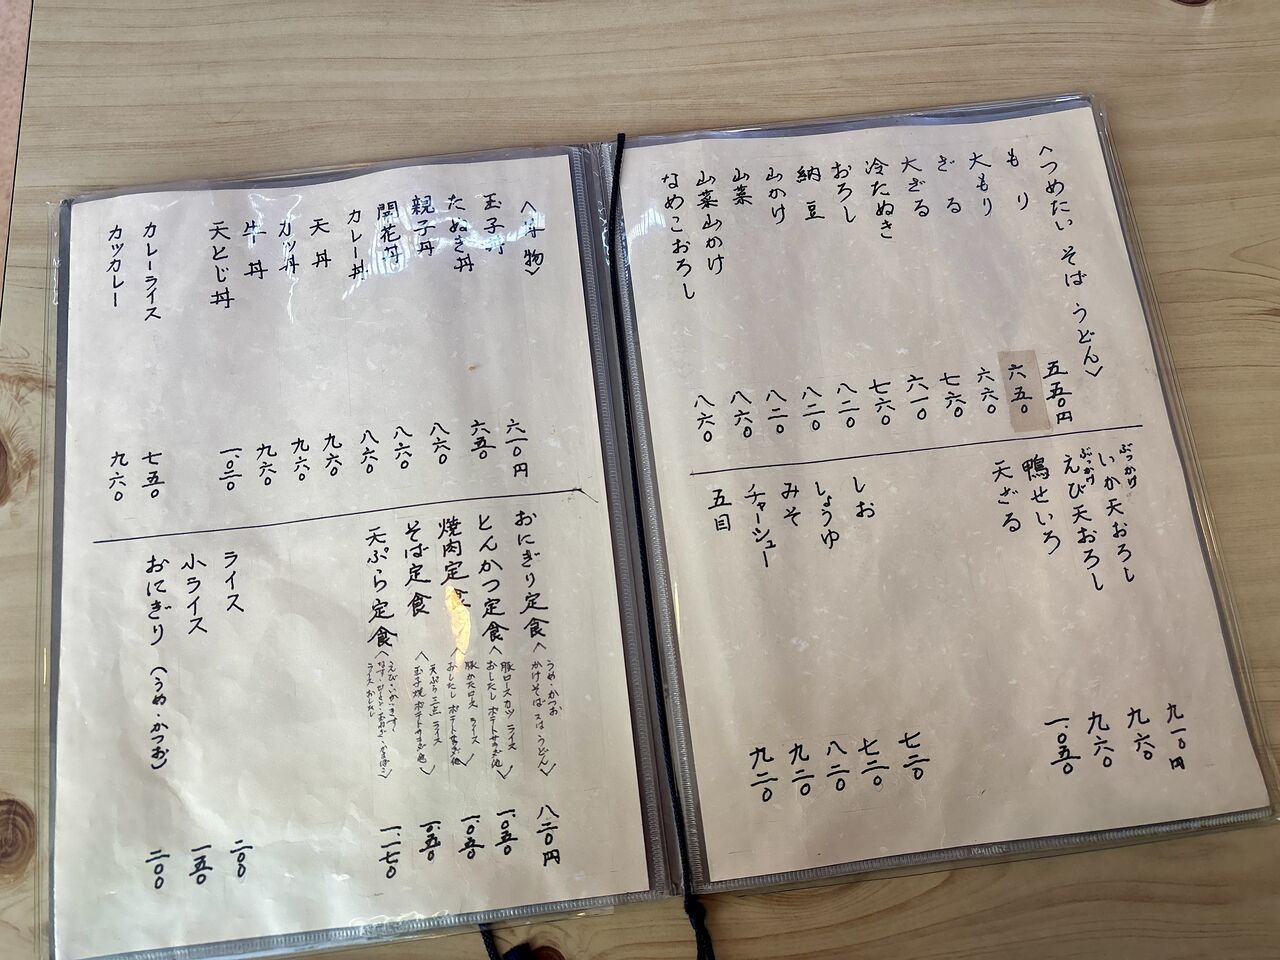 〈つめたい そば うどん〉
もり 五五〇円
大もり 六五〇
ざる 六六〇
大ざる 七六〇
冷たぬき 六一〇
おろし 七六〇
納豆 八二〇
山かけ 八二〇
山菜 八二〇
山菜山かけ 八六〇
なめこおろし 八六〇
ぶっかけ いか天おろし 九一〇円
ぶっかけ えび天おろし 九六〇
鴨せいろ 九六〇
天ざる 一、〇五〇
しお 七二〇
しょうゆ 七二〇
みそ 八二〇
チャーシュー 九二〇
五目 九二〇
〈丼物〉
玉子丼 六一〇円
たぬき丼 六五〇
親子丼 八六〇
開花丼 八六〇
カレー丼 八六〇
天丼 九六〇
カツ丼 九六〇
牛丼 九六〇
天とじ丼 一、〇二〇
カレーライス 七五〇
カツカレー 九六〇
おにぎり定食〈うめ・かつお
かけそば又はうどん〉 八二〇円
とんかつ定食〈豚ロースカツ ライス
おしたし ポテトサラダ他〉 一、〇五〇
焼肉定食〈豚かたロース ライス
おしたし ポテトサラダ他〉 一、〇五〇
そば定食〈天ぷら三点 ライス
玉子焼 ポテトサラダ他〉 一、〇五〇
天ぷら定食〈えび・いか・きす・
ライス おしたし〉 一、一七〇
ライス 二〇〇
小ライス 一五〇
おにぎり（うめ・かつお） 二〇〇